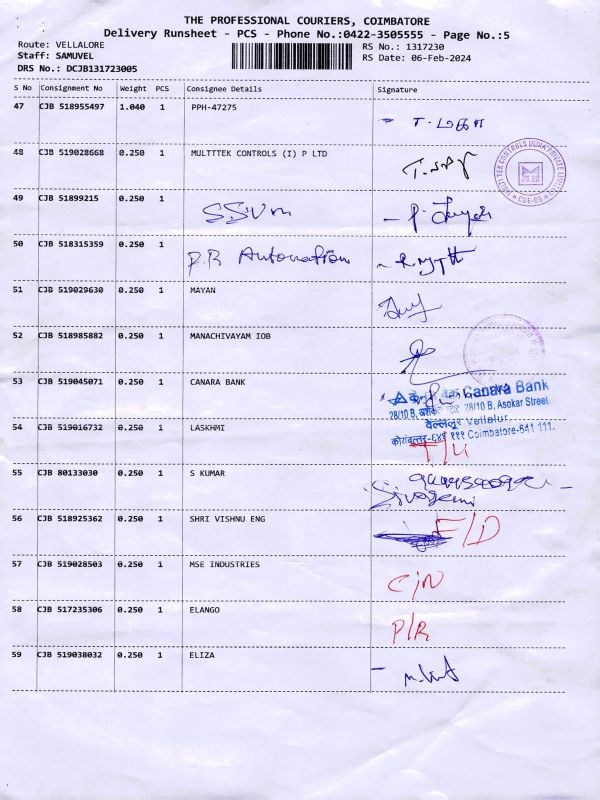 THE PROFESSIONAL COURIERS, COIMBATORE
Delivery Runsheet - PCS - Phone No.:0422-3505555 - Page No.:5
Route: VELLALORE
RS No.: 1317230
Staff: SAMUVEL
RS Date: 06-Feb-2024
DRS No.: DCJB131723005
S No Consignment No Weight PCS Consignee Details Signature
47 CJB 518955497 1.040 1 PPH-47275
48 CJB 519028668 0.250 1 MULTTTEK CONTROLS (I) P LTD
49 CJB 51899215 0.250 1 SSVM
50 CJB 518315359 0.250 1 P.R Automation
51 CJB 519029630 0.250 1 MAYAN
52 CJB 518985882 0.250 1 MANACHIVAYAM IOB
53 CJB 519045071 0.250 1 CANARA BANK
Canara Bank
28/10 B, 28/10 B, Asokar Street
वेल्ललूर Vellalur
Coimbatore-641 111.
54 CJB 519016732 0.250 1 LASKHMI
55 CJB 80133030 0.250 1 S KUMAR
56 CJB 518925362 0.250 1 SHRI VISHNU ENG
57 CJB 519028503 0.250 1 MSE INDUSTRIES C/N
58 CJB 517235306 0.250 1 ELANGO P/R
59 CJB 519038032 0.250 1 ELIZA